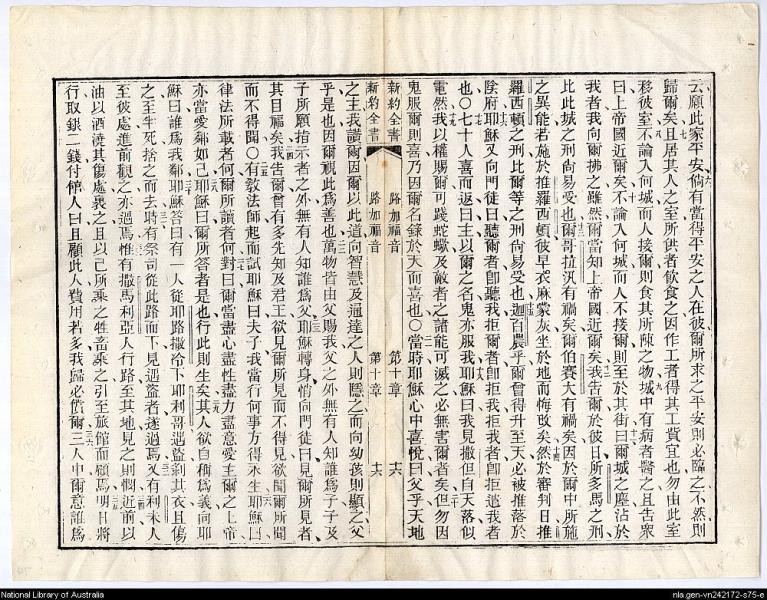 云願此家平安倘有當得平安之人在彼爾所求之平安則必臨之不然則
歸爾矣且居其人之室所供者飲食之因作工者得其工貲宜也勿由此室
移彼室不論入何城而人接爾則食其所陳之物城中有病者醫之且告衆
曰上帝國近爾矣不論入何城而人不接爾則至於其街曰爾城之塵沾於
我者我向爾拂之雖然爾當知上帝國近爾矣我告爾於彼日所多馬之刑
比此城之刑尙易受也爾哥拉汎有禍矣爾伯賽大有禍矣因於爾中所施
之異能若施於推羅西頓彼早衣麻蒙灰坐於地而悔改矣然於審判日推
羅西頓之刑比爾等之刑尙易受也迦百農乎爾曾得升至天必被推落於
陰府耶穌又向門徒曰聽爾者卽聽我拒爾者卽拒我拒我者卽拒遣我者
也〇七十人喜而返曰主以爾之名鬼亦服我耶穌曰我見撒但自天落似
電然我以權賜爾可踐蛇蠍及敵者之諸能可滅之必無害爾者矣但勿因
鬼服爾則喜乃因爾名錄於天而喜也〇當時耶穌心中喜悅曰父乎天地
新約全書 路加福音 第十章 十六
新約全書 路加福音 第十章 十六
之主我讚爾因爾以此道向智慧及通達之人則隱之而向幼孩則顯之父
乎是也因爾視此爲善也萬物皆由父賜我父之外無有人知誰爲子子及
子所願指示者之外無有人知誰爲父耶穌轉身悄向門徒曰見爾所見者
其目福矣我告爾曾有多先知及君王欲見爾所見而不得見欲聞爾所聞
而不得聞〇有教法師起而試耶穌曰夫子我當行何事方得永生耶穌曰
律法所載者何爾所讀者何對曰爾當盡心盡性盡力盡意愛主爾之上帝
亦當愛鄰如己耶穌曰爾所答者是也行此則生矣其人欲自稱爲義向耶
穌曰誰爲我鄰耶穌答曰有一人從耶路撒冷下耶利哥遇盜剝其衣且傷
之至半死捨之而去時有祭司從此路而下見遇盜者遂過焉又有利未人
至彼處進前觀之亦過焉惟有撒馬利亞人行路至其地見之則憫近前以
油以酒澆其傷處裹之且以己所乘之牲畜乘之引至旅館而顧焉明日將
行取銀二錢付館人曰且顧此人費用若多我歸必償爾三人中爾意誰爲
National Library of Australia
nla.gen-vn242172-s75-e